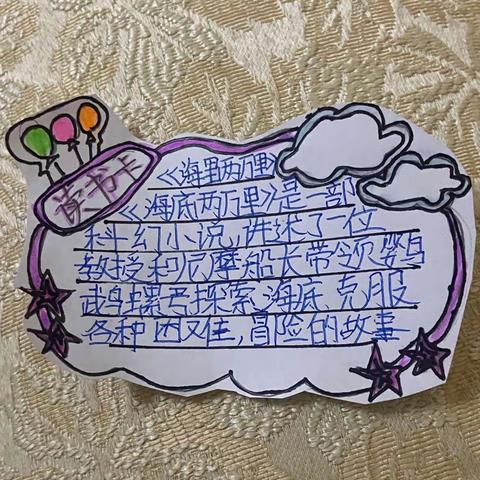 读书卡
《海里两万里》
《海底两万里》是一部
科幻小说,讲述了一位
教授和尼摩船长带领鹦鸟
鹉螺号探索、海底、克服
各种困难,冒险的故事